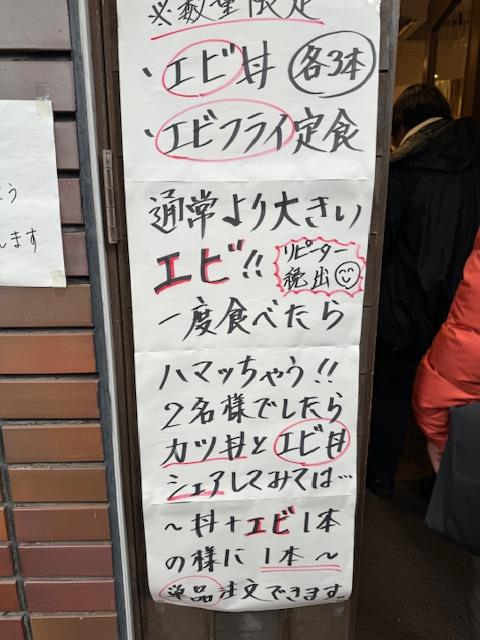 ※数量限定
、エビ丼 各3本
、エビフライ定食
通常より大きい
エビ!! リピーター
続出
一度食べたら
ハマッちゃう!!
2名様でしたら
カツ丼とエビ丼
シェアしてみては…
～丼+エビ1本
の様に1本～
単品注文できます。
ます